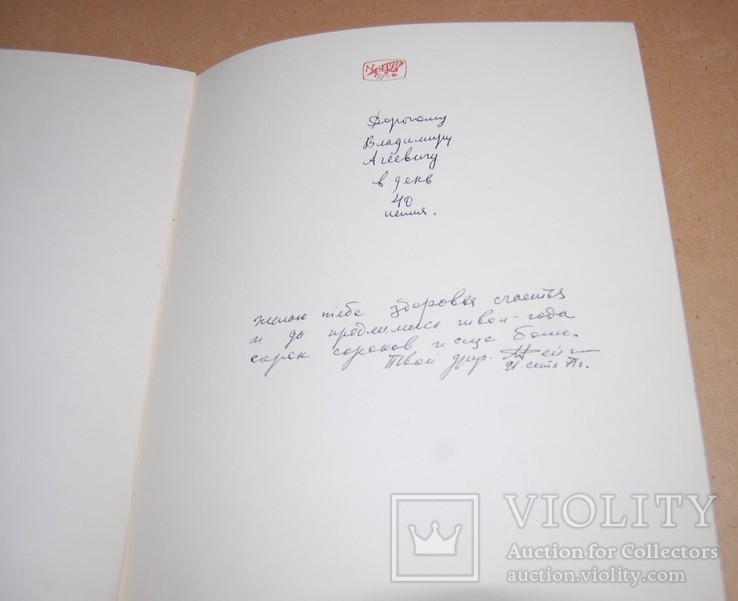 Дорогому
Владимиру
Агеевичу
в день
40
летия.
желаю тебе здоровья счастья
и да продлились твои года
сорок сороков и еще боле.
Твой друг.
VIOLITY
Auction for Collectors
auction.violity.com